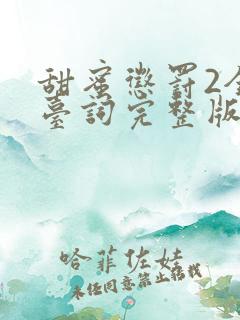 甜蜜懲罰2全
臺詞完整版
哈菲佐娃
未经同意禁止转载